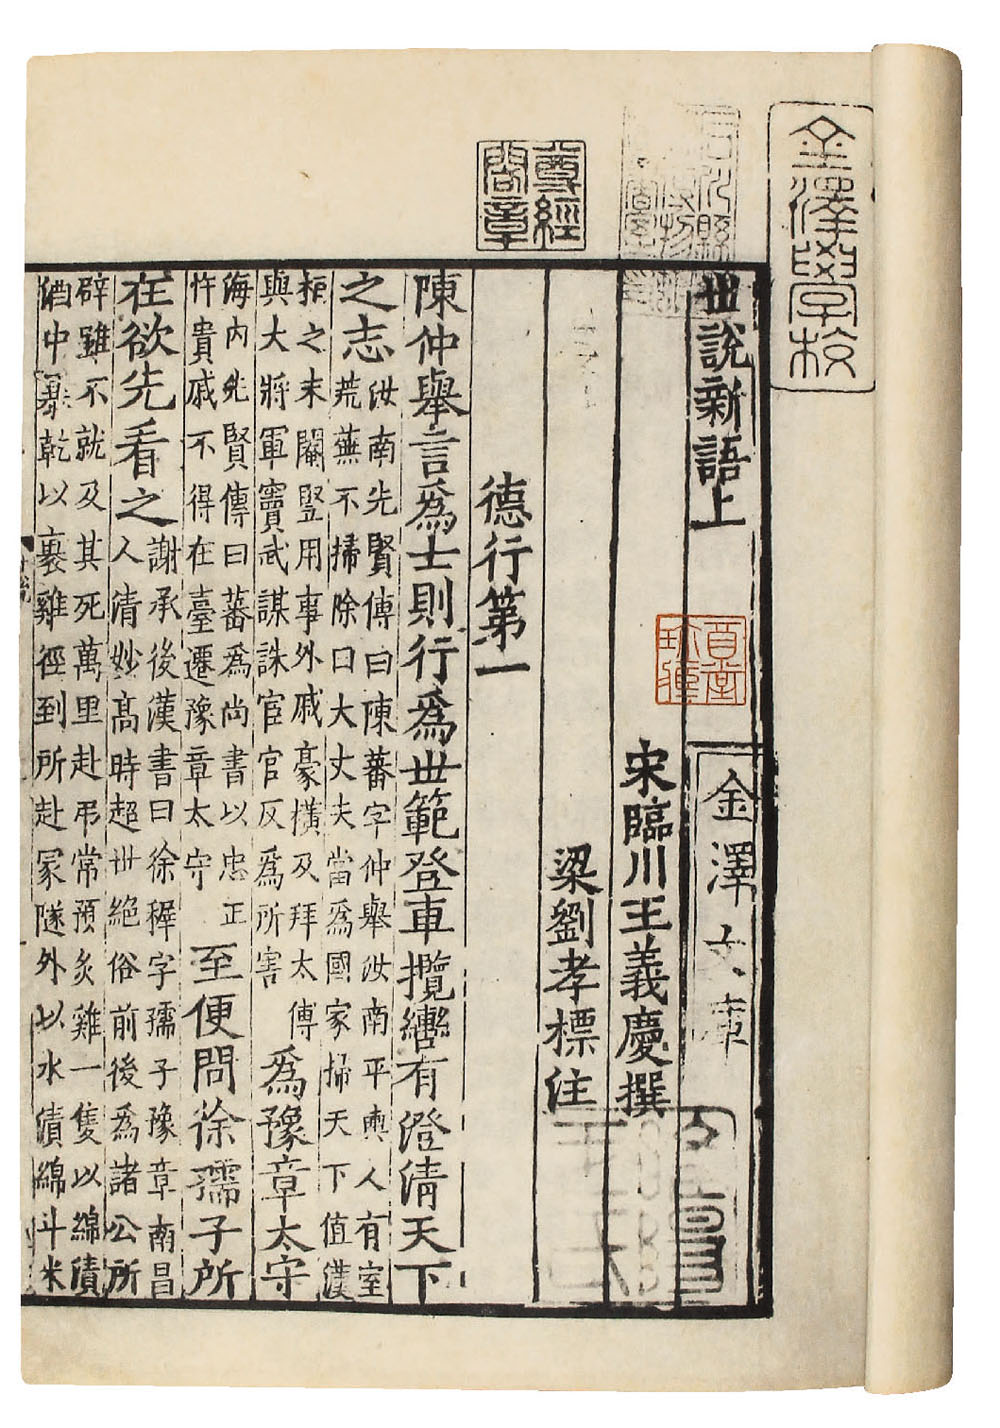 世說新語上
宋臨川王義慶撰
梁劉孝標注
德行第一
陳仲舉言爲士則行爲世範登車攬轡有澄清天下
之志
汝南先賢傳曰陳蕃字仲舉汝南平輿人有室
荒蕪不掃除曰大丈夫當爲國家掃天下值漢
桓之末閹豎用事外戚豪橫及拜太傅
與大將軍竇武謀誅宦官反爲所害
爲豫章太守
海内先賢傳曰蕃爲尚書以忠正
忤貴戚不得在臺遷豫章太守
至便問徐孺子所
在欲先看之
謝承後漢書曰徐穉字孺子豫章南昌
人清妙高時超世絕俗前後爲諸公所
辟雖不就及其死萬里赴弔常預炙雞一隻以綿漬
酒中暴乾以裹雞徑到所赴冢隧外以水漬綿斗米
金澤學校
尊經
閣章
金澤文庫